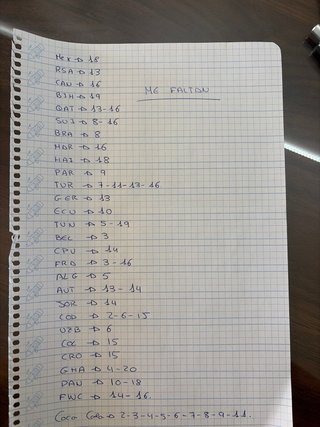 Mex → 18
RSA → 13
CAN → 16
BIH → 19
ME FALTAN
QAT → 13-16
SUI → 8-16
BRA → 8
MOR → 16
HAI → 18
PAR → 9
TUR → 7-11-13-16
GER → 13
ECU → 10
TUN → 5-19
BEL → 3
CPU → 14
FRA → 3-16
ALG → 5
AUT → 13-14
JOR → 14
COD → 2-6-15
UZB → 6
COL → 15
CRO → 15
GHA → 4-20
PAN → 10-18
FWC → 14-16
Coca Cola → 2-3-4-5-6-7-8-9-11.